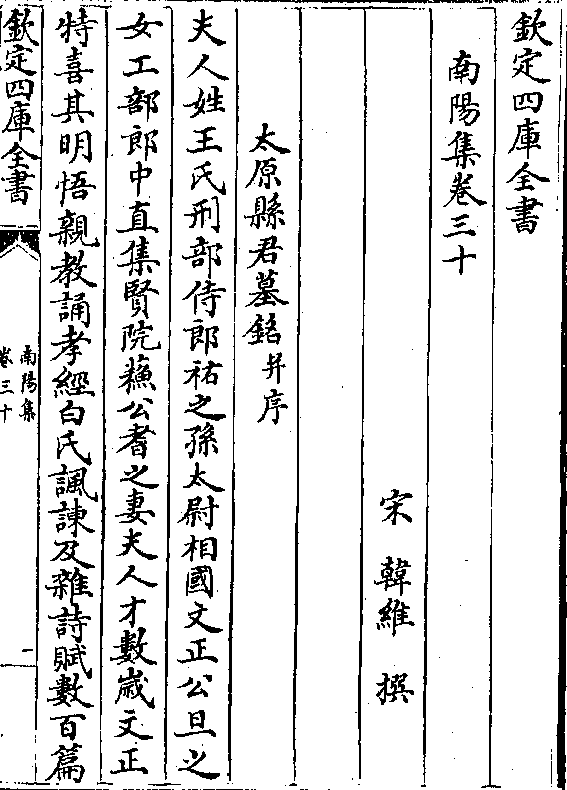 欽定四庫全書
南陽集卷三十
宋 韓維 撰
太原縣君墓銘并序
夫人姓王氏刑部侍郎祐之孫太尉相國文正公旦之
女工部郎中直集賢院蘓公耆之妻夫人才數嵗文正
特喜其明悟親教誦孝經白氏諷諫及雜詩賦數百篇
欽定四庫全書
南陽集
卷三十
一